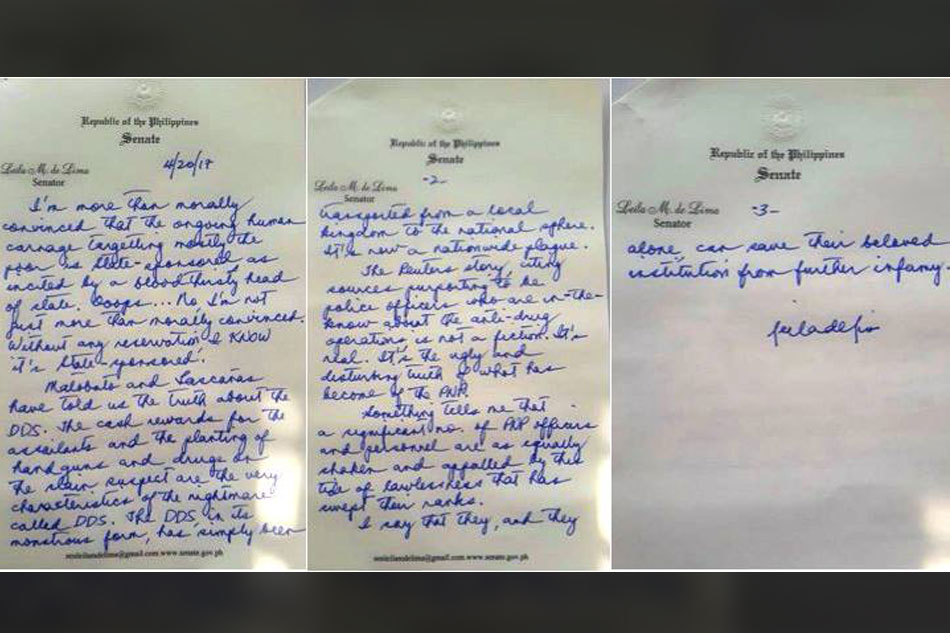 Republic of the Philippines
Senate
Leila M. de Lima
Senator
4/20/17
I'm more than morally
convinced that the ongoing human
carnage targetting mostly the
poor is State-sponsored as
incited by a bloodthirsty head
of state. Ooops... No I'm not
just more than morally convinced.
Without any reservation I KNOW
it's State-sponsored.
Matobato and Lascañas
have told us the truth about the
DDS. The cash rewards for the
assailants and the planting of
handguns and drugs on
the slain suspect are the very
characteristics of the nightmare
called DDS. The DDS, in its
monstrous form, has simply been
senleilamdelima@gmail.com www.senate.gov.ph
Republic of the Philippines
Senate
Leila M. de Lima
Senator
-2-
transported from a local
kingdom to the national sphere.
It's now a nationwide plague.
The Reuters story, citing
sources purporting to be
police officers who are in-the-
know about the anti-drug
operations is not a fiction. It's
real. It's the ugly and
disturbing truth of what has
become of the PNP.
Something tells me that
a significant no. of PNP officers
and personnel are as equally
shaken and appalled by this
tide of lawlessness that has
swept their ranks.
I say that they, and they
senleilamdelima@gmail.com www.senate.gov.ph
Republic of the Philippines
Senate
Leila M. de Lima
Senator
-3-
alone, can save their beloved
institution from further infamy.